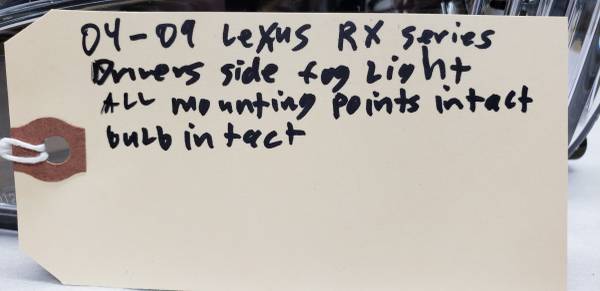 04-09 Lexus RX series
Drivers side fog Light
ALL mounting points intact
bulb intact